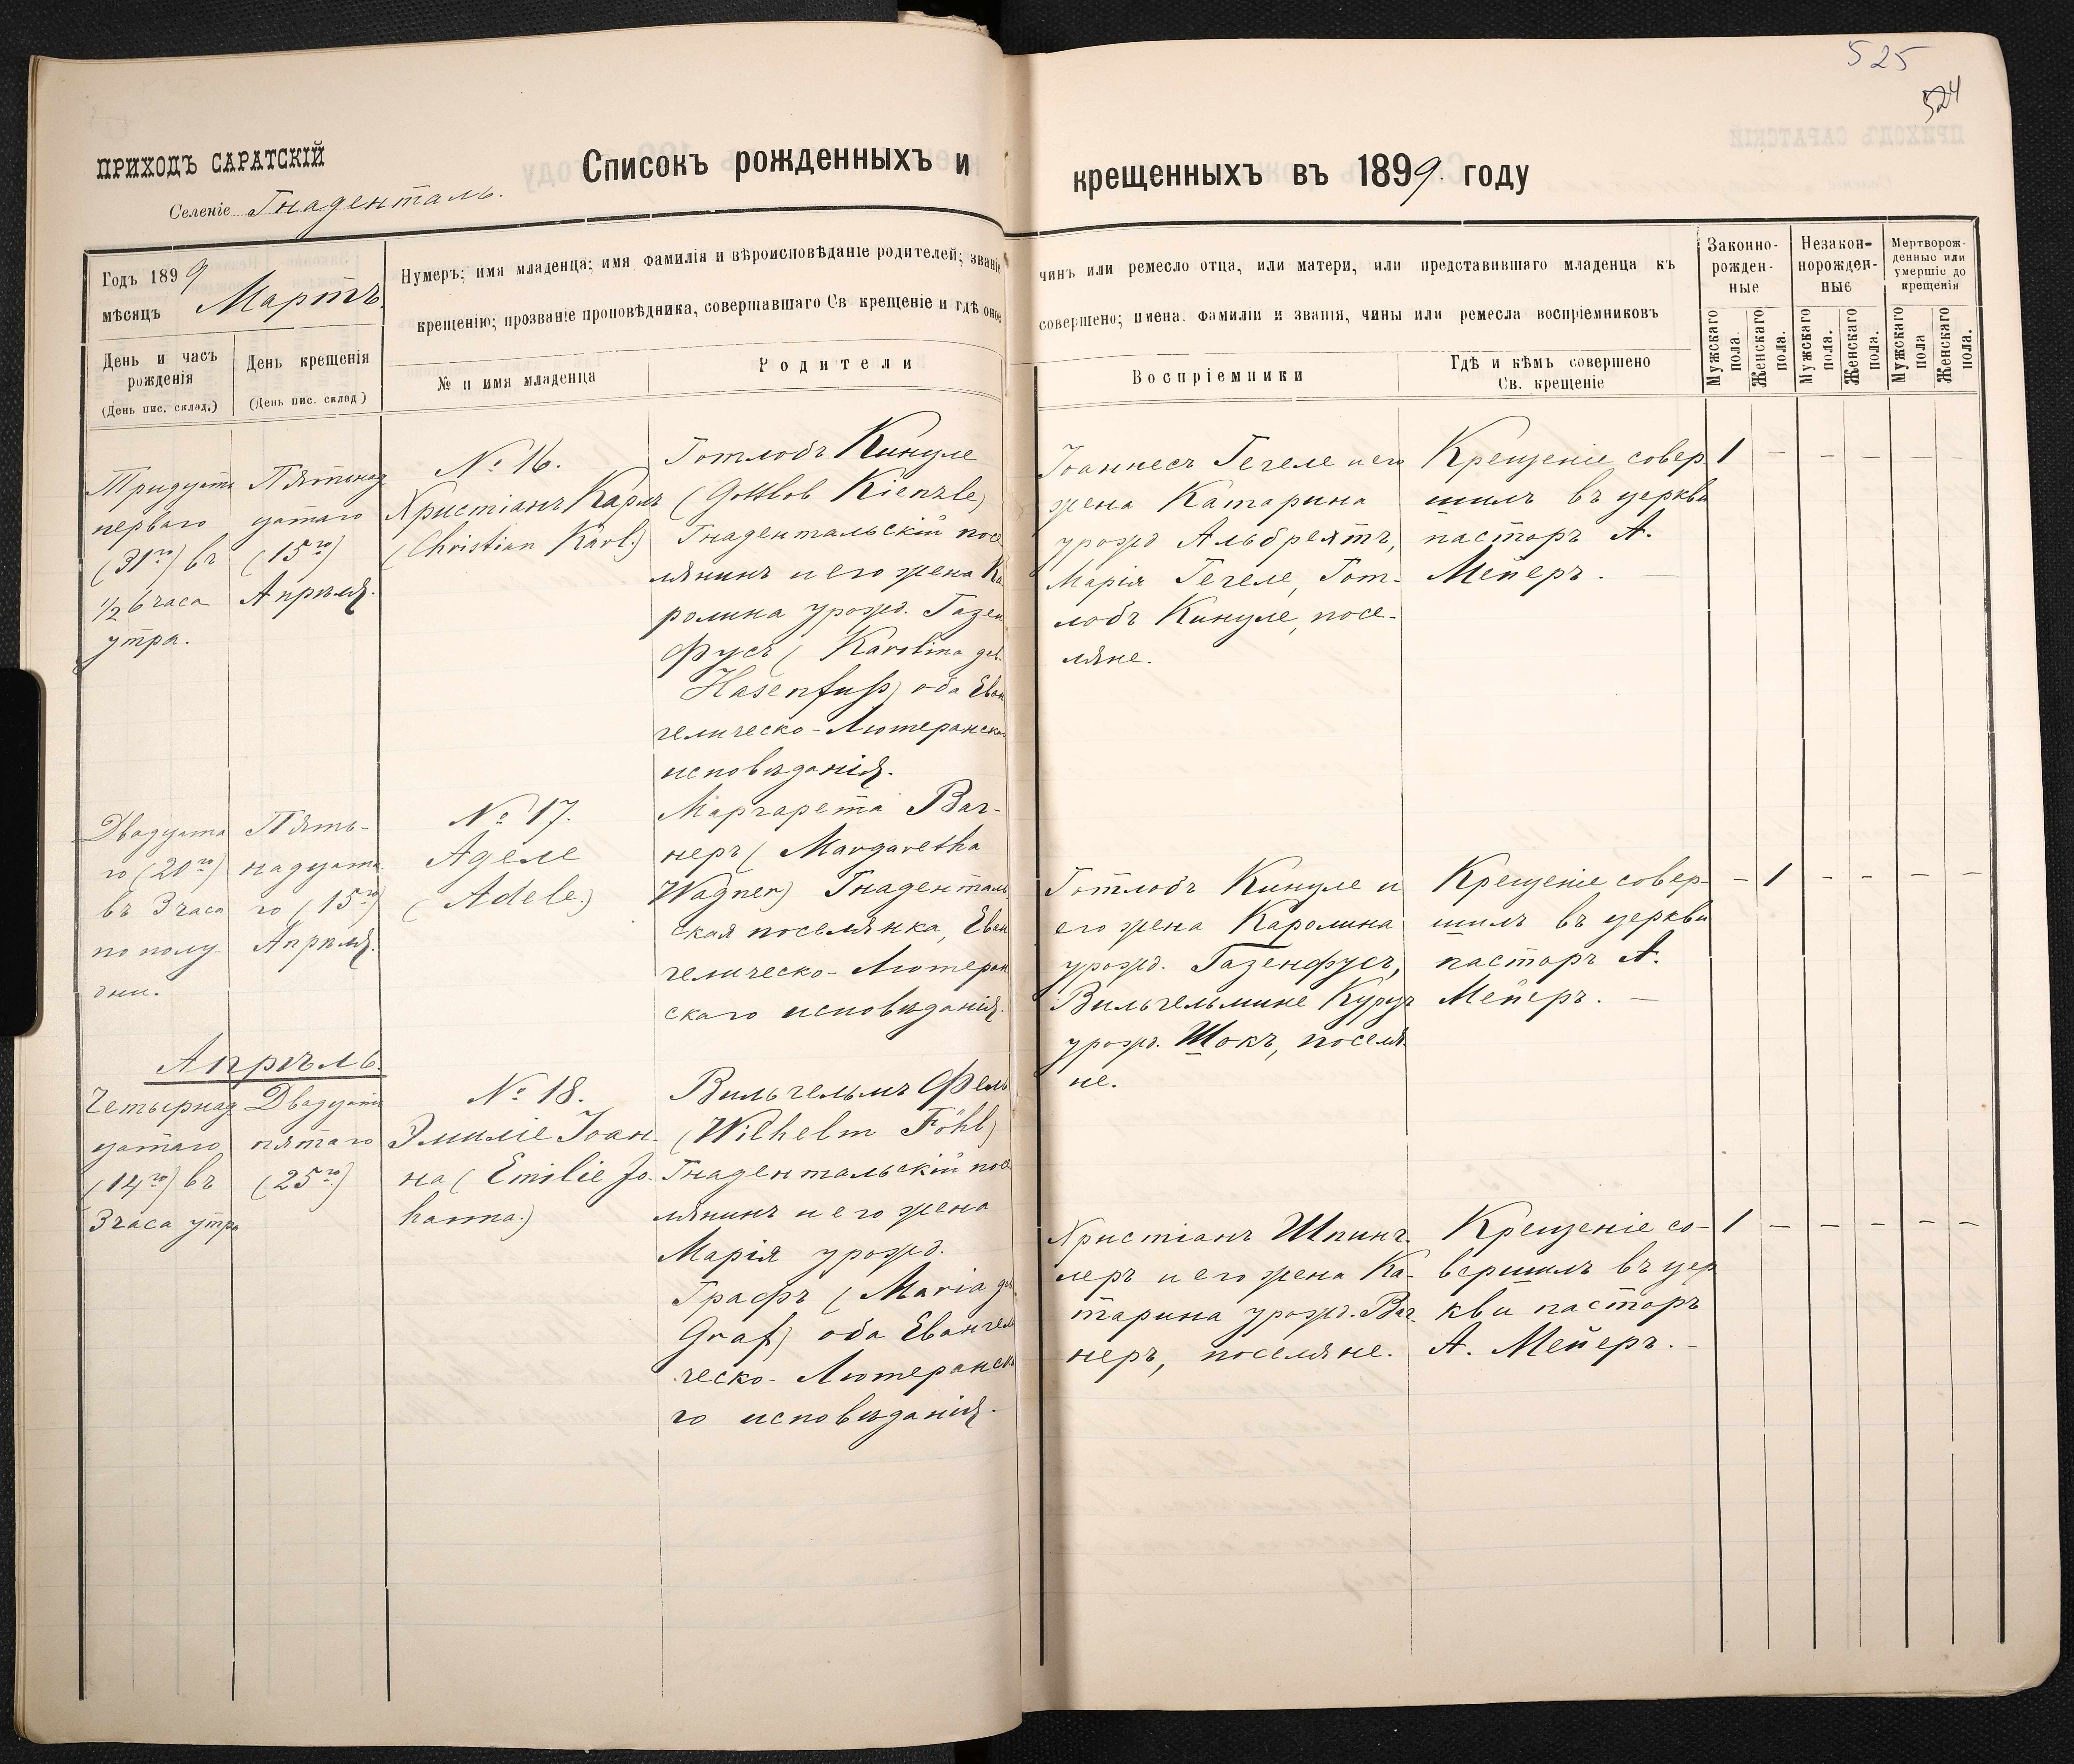 525
524
ПРИХОДЪ САРАТСКІЙ
Селеніе Гнаденталь.
Списокъ рожденныхъ и крещенныхъ въ 1899. году
Годъ 1899
мѣсяцъ Мартъ.
Нумеръ; имя младенца; имя фамилія и вѣроисповѣданіе родителей; званіе
крещенію; прозваніе проповѣдника, совершавшаго Св крещеніе и гдѣ оное
чинъ или ремесло отца, или матери, или представившаго младенца къ
совершено; имена. фамиліи и званія, чины или ремесла воспріемниковъ
День и часъ
рожденія
(День пис. склад.)
День крещенія
(День пис. склад)
№ и имя младенца
Родители
Воспріемники
Гдѣ и кѣмъ совершено
Св. крещеніе
Законно-
рожден-
ные
Незакон-
норожден-
ные
Мертворож-
денные или
умершіе до
крещенія
Мужскаго
пола.
Женскаго
пола.
Мужскаго
пола.
Женскаго
пола.
Мужскаго
пола
Женскаго
пола.
Тридцать
перваго
(31го) въ
1/2 6 часа
утра.
Пятьнад
цатаго
(15го)
Апрѣля.
№ 16.
Христіанъ Карлъ
(Christian Karl.)
Готлобъ Кинцле
(Gottlob Kienzle)
Гнадентальскій посе
лянинъ и его жена Ка
ролина урожд. Газен
фусъ (Karolina geb.
Hasenfuß) оба Еван
гелическо-Лютеранска
исповѣданія.
Іоаннесъ Гегеле и его
жена Катарина
урожд Альбрехтъ,
Марія Гегеле, Гот-
лобъ Кинцле, посе-
ляне.
Крещеніе совер
шилъ въ церкви
пасторъ А.
Мейеръ. —
1 — — — — —
Двадцата
го (20го)
въ 3 часа
по полу-
дни.
Пять-
надцата
го (15го)
Апрѣля.
№ 17.
Аделе
(Adele.)
Маргарета Ваг-
неръ (Margaretha
Wagner) Гнаденталь
ская поселянка, Еван
гелическо-Лютеран
скаго исповѣданія.
Готлобъ Кинцле и
его жена Каролина
урожд. Газенфусъ,
Вильгельмине Курцъ
урожд. Шокъ, поселя
не.
Крещеніе совер-
шилъ въ церкви
пасторъ А.
Мейеръ. —
— 1 — — — —
Апрѣль.
Четырнад
цатаго
(14го) въ
3 часа утра
Двадцать
пятаго
(25го)
№ 18.
Эмиліе Іоан-
на (Emilie Jo-
hanna.)
Вильгельмъ Фель
(Wilhelm Föhl)
Гнадентальскій посе
лянинъ и его жена
Марія урожд.
Графъ (Maria geb.
Graf) оба Евангели
ческо-Лютеранска
го исповѣданія.
Христіанъ Шпинг-
леръ и его жена Ка-
тарина урожд. Ваг-
неръ, поселяне.
Крещеніе со-
вершилъ въ цер
кви пасторъ
А. Мейеръ. —
1 — — — — —